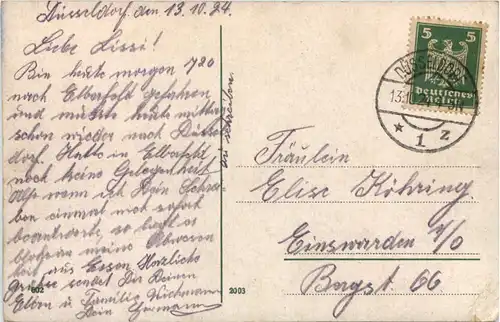 Düsseldorf den 13.10.24.
Liebe Lissi!
Bin heute morgen 7 20
nach Elberfeld gefahren
und mußte heute mittag
schon wieder nach Düssel
dorf. Hatte in Elberfeld
noch keine Gelegenheit
Also wenn ich Dein Schrei-
ben einmal nicht sofort
beantworte, so liegt es
meine Abwesen
heit aus Essen Herzliche
Grüsse sendet Dir Deinen
Eltern u Familie
Dein Hermann
zu schreiben
5 5
DÜSSELDORF
Deutsches
Reich
13.10
* 1 z
Fräulein
Elise Köhring
Einswarden i/O
Bergst. 66
602
2003